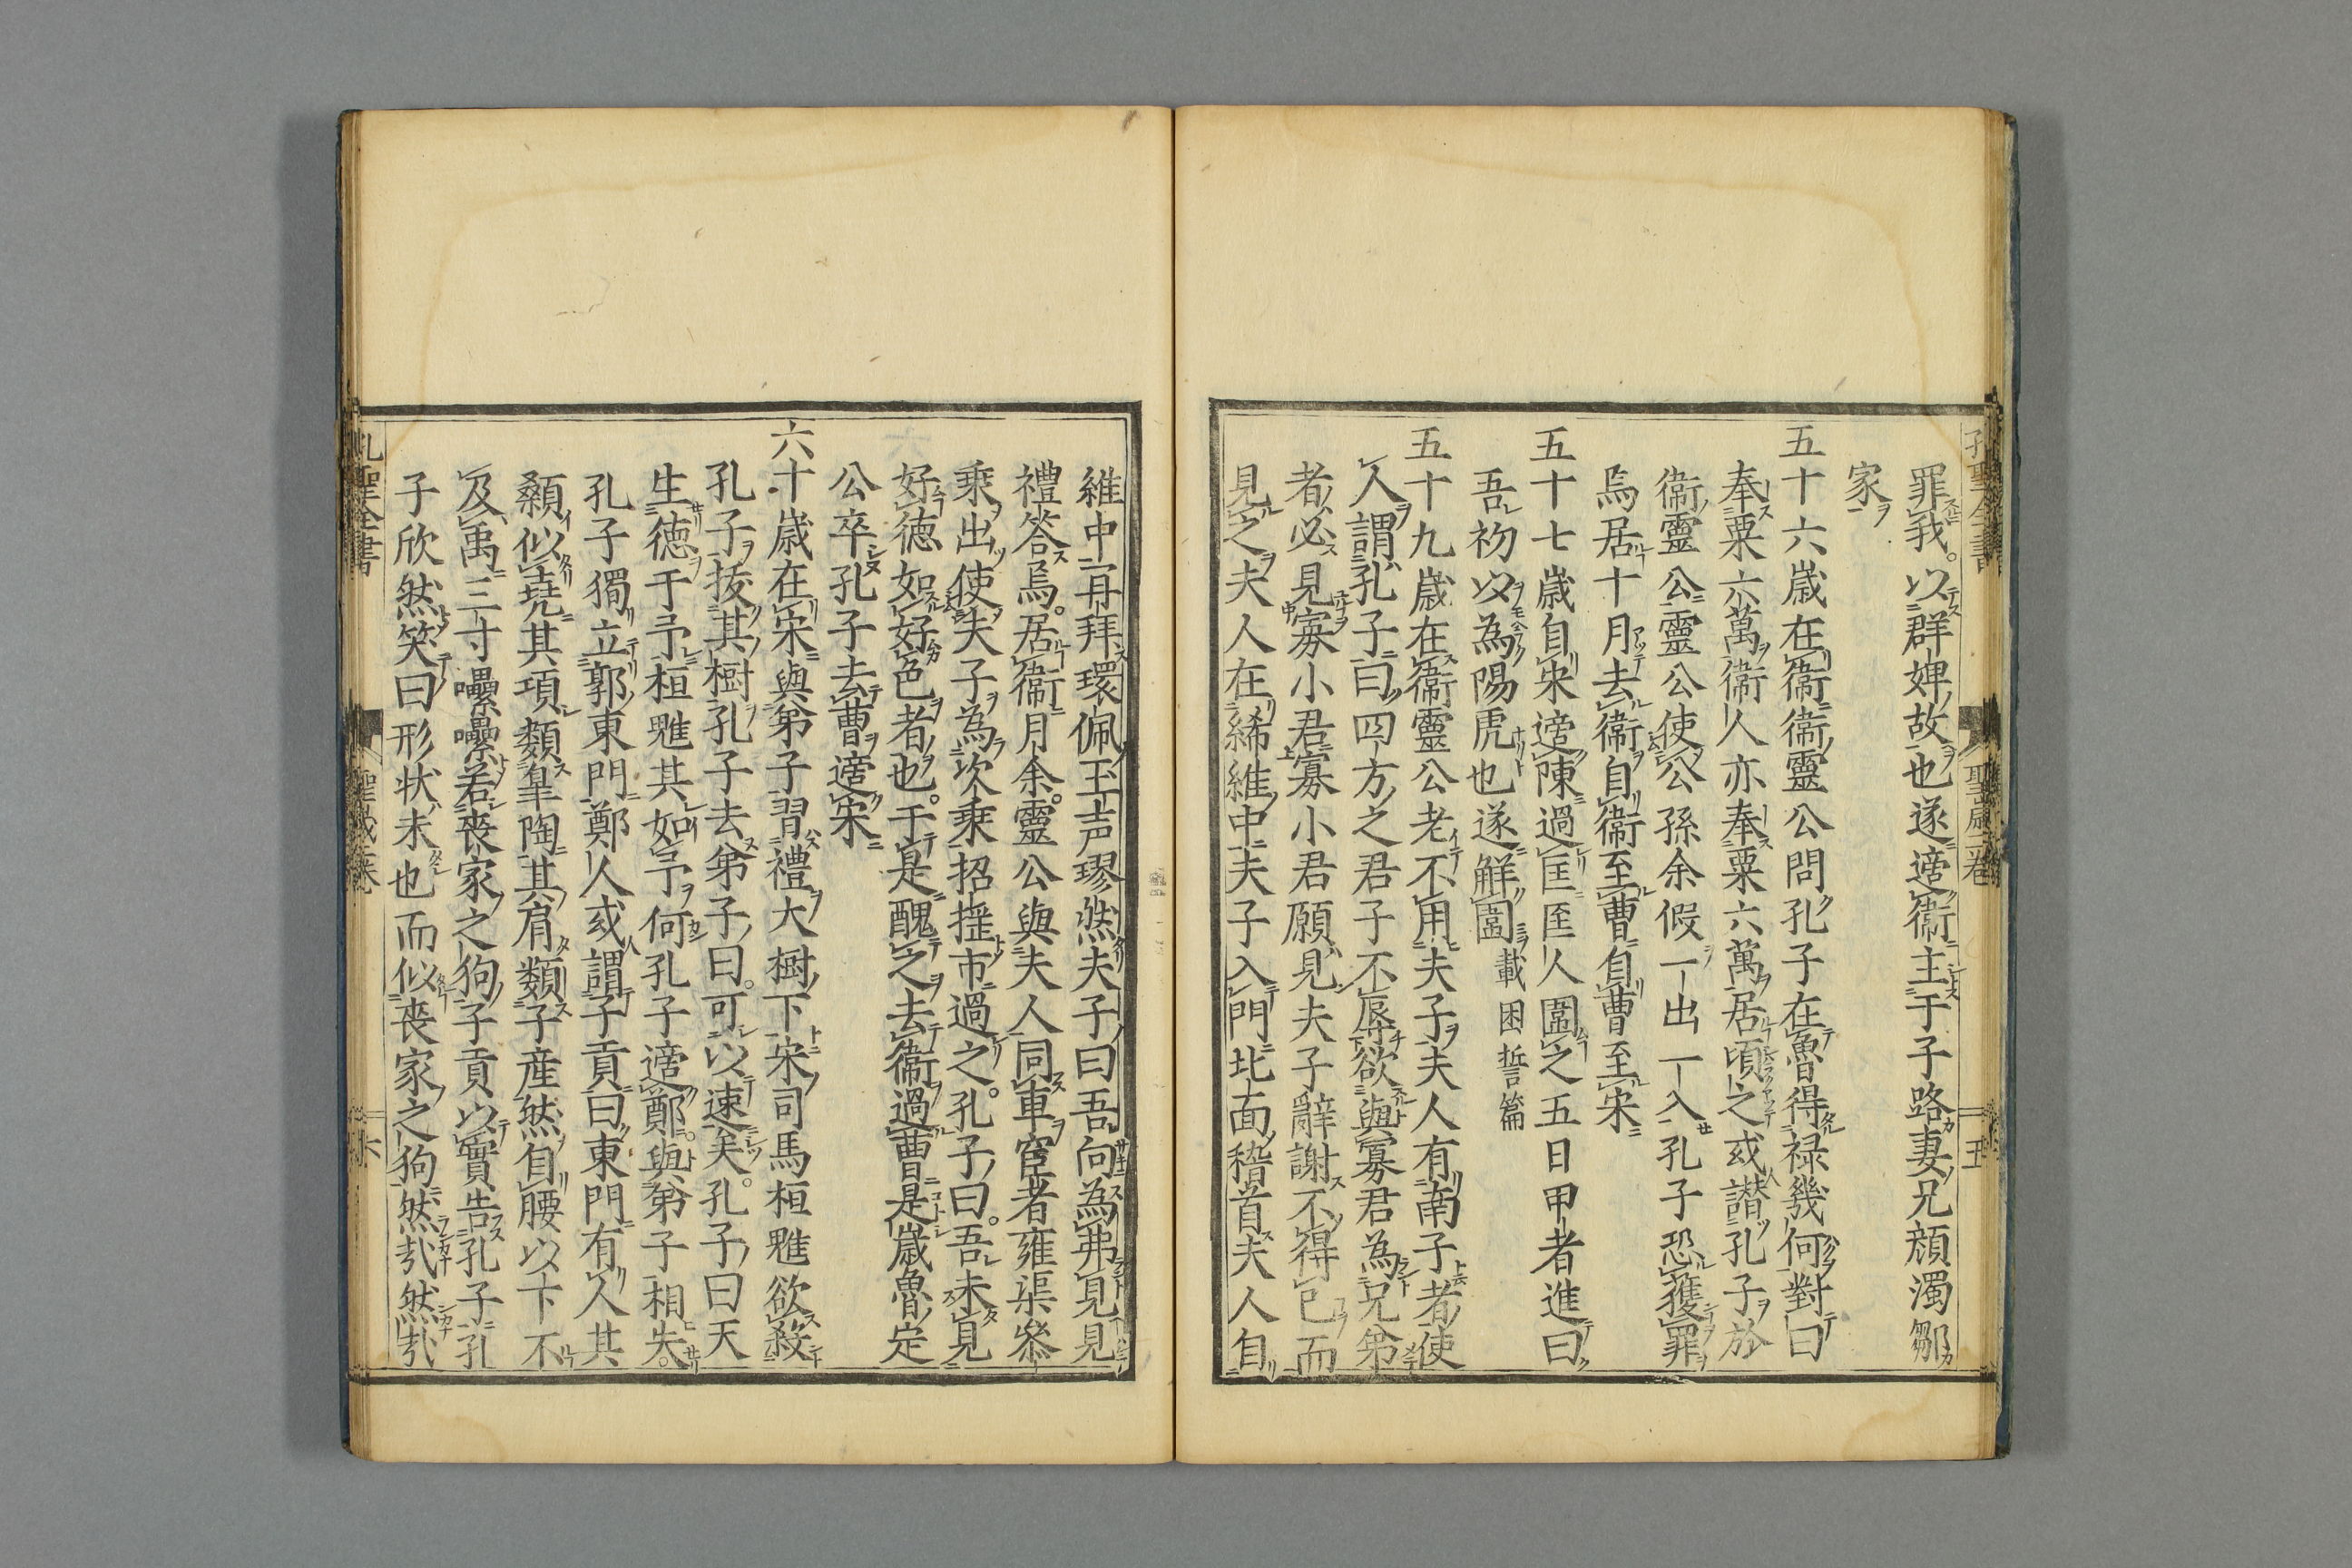 罪我以群婢故也遂適衞主于子路妻兄顔濁鄒
家
五十六歳在衞衞靈公問孔子在魯得禄幾何對曰
奉粟六萬衞人亦奉粟六萬居頃之或譛孔子於
衞靈公靈公使公孫余假一出一入孔子恐獲罪
焉居十月去衞自衞至曹自曹至宋
五十七歳自宋適陳過匡匡人圍之五日甲者進曰
吾初以為陽虎也遂解圍載困誓篇
五十九歳在衞靈公老不用夫子夫人有南子者使
人謂孔子曰四方之君子不辱欲與寡君為兄弟
者必見寡小君寡小君願見夫子辭謝不得已而
見之夫人在絺維中夫子入門北面稽首夫人自
維中再拜環佩玉声璆然夫子曰吾向為弗見見
禮答焉。居衞月余。靈公與夫人同車宦者雍渠參
乗出使夫子為次乗招揺市過之。孔子曰。吾未見
好徳如好色者也。于是醜之去衞過曹是歳魯定
公卒孔子去曹適宋
六十歳在宋與弟子習禮大樹下宋司馬桓魋欲殺
孔子抜其樹孔子去弟子曰。可以速矣。孔子曰天
生徳于予桓魋其如予何孔子適鄭。與弟子相失。
孔子獨立郭東門鄭人或謂子貢曰東門有人其
顙似堯其項類皐陶其肩類子産然自腰以下不
及禹三寸儽儽若喪家之狗子貢以實告孔子孔
子欣然笑曰形状未也而似喪家之狗然哉然哉
孔聖全書
聖歳二卷
五
孔聖全書
聖歳二卷
六